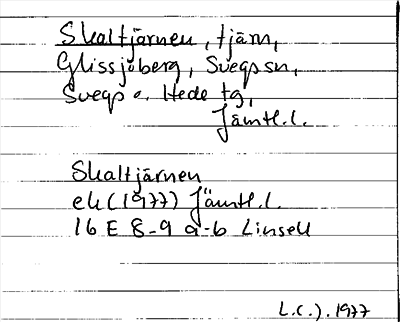 Skaltjärnen, tjärn,
Glissjöberg, Svegs sn,
Svegs o. Hede tg,
Jämtl.l.
Skaltjärnen
ek (1977) Jämtl.l.
16 E 8-9 a-b Linsell
L.C.J. 1977